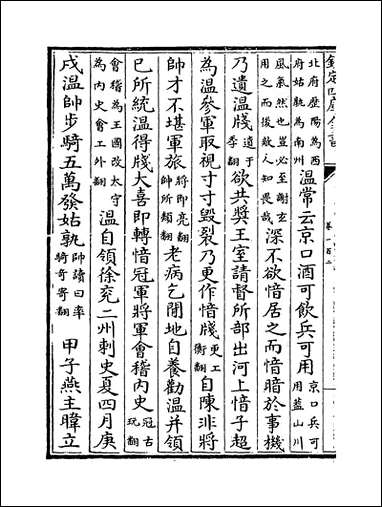 欽定四庫全書 卷一百二
北府歷陽為西府姑孰為南州溫常云京口酒可飲兵可用京口兵可用蓋山川
風氣然也豈必至謝玄用之而後敵人知畏哉深不欲愔居之而愔暗於事機
乃遺溫牋遺于季翻欲共奬王室請督所部出河上愔子超
為溫參軍取視寸寸毀裂乃更作愔牋更工衡翻自陳非將
帥才不堪軍旅將即亮翻帥所類翻老病乞閒地自養勸溫并領
已所統溫得牋大喜即轉愔冠軍將軍會稽內史冠古玩翻
會稽為王國改太守為內史會工外翻溫自領徐兗二州刺史夏四月庚
戌溫帥步騎五萬發姑孰帥讀曰率騎奇寄翻甲子燕主暐立